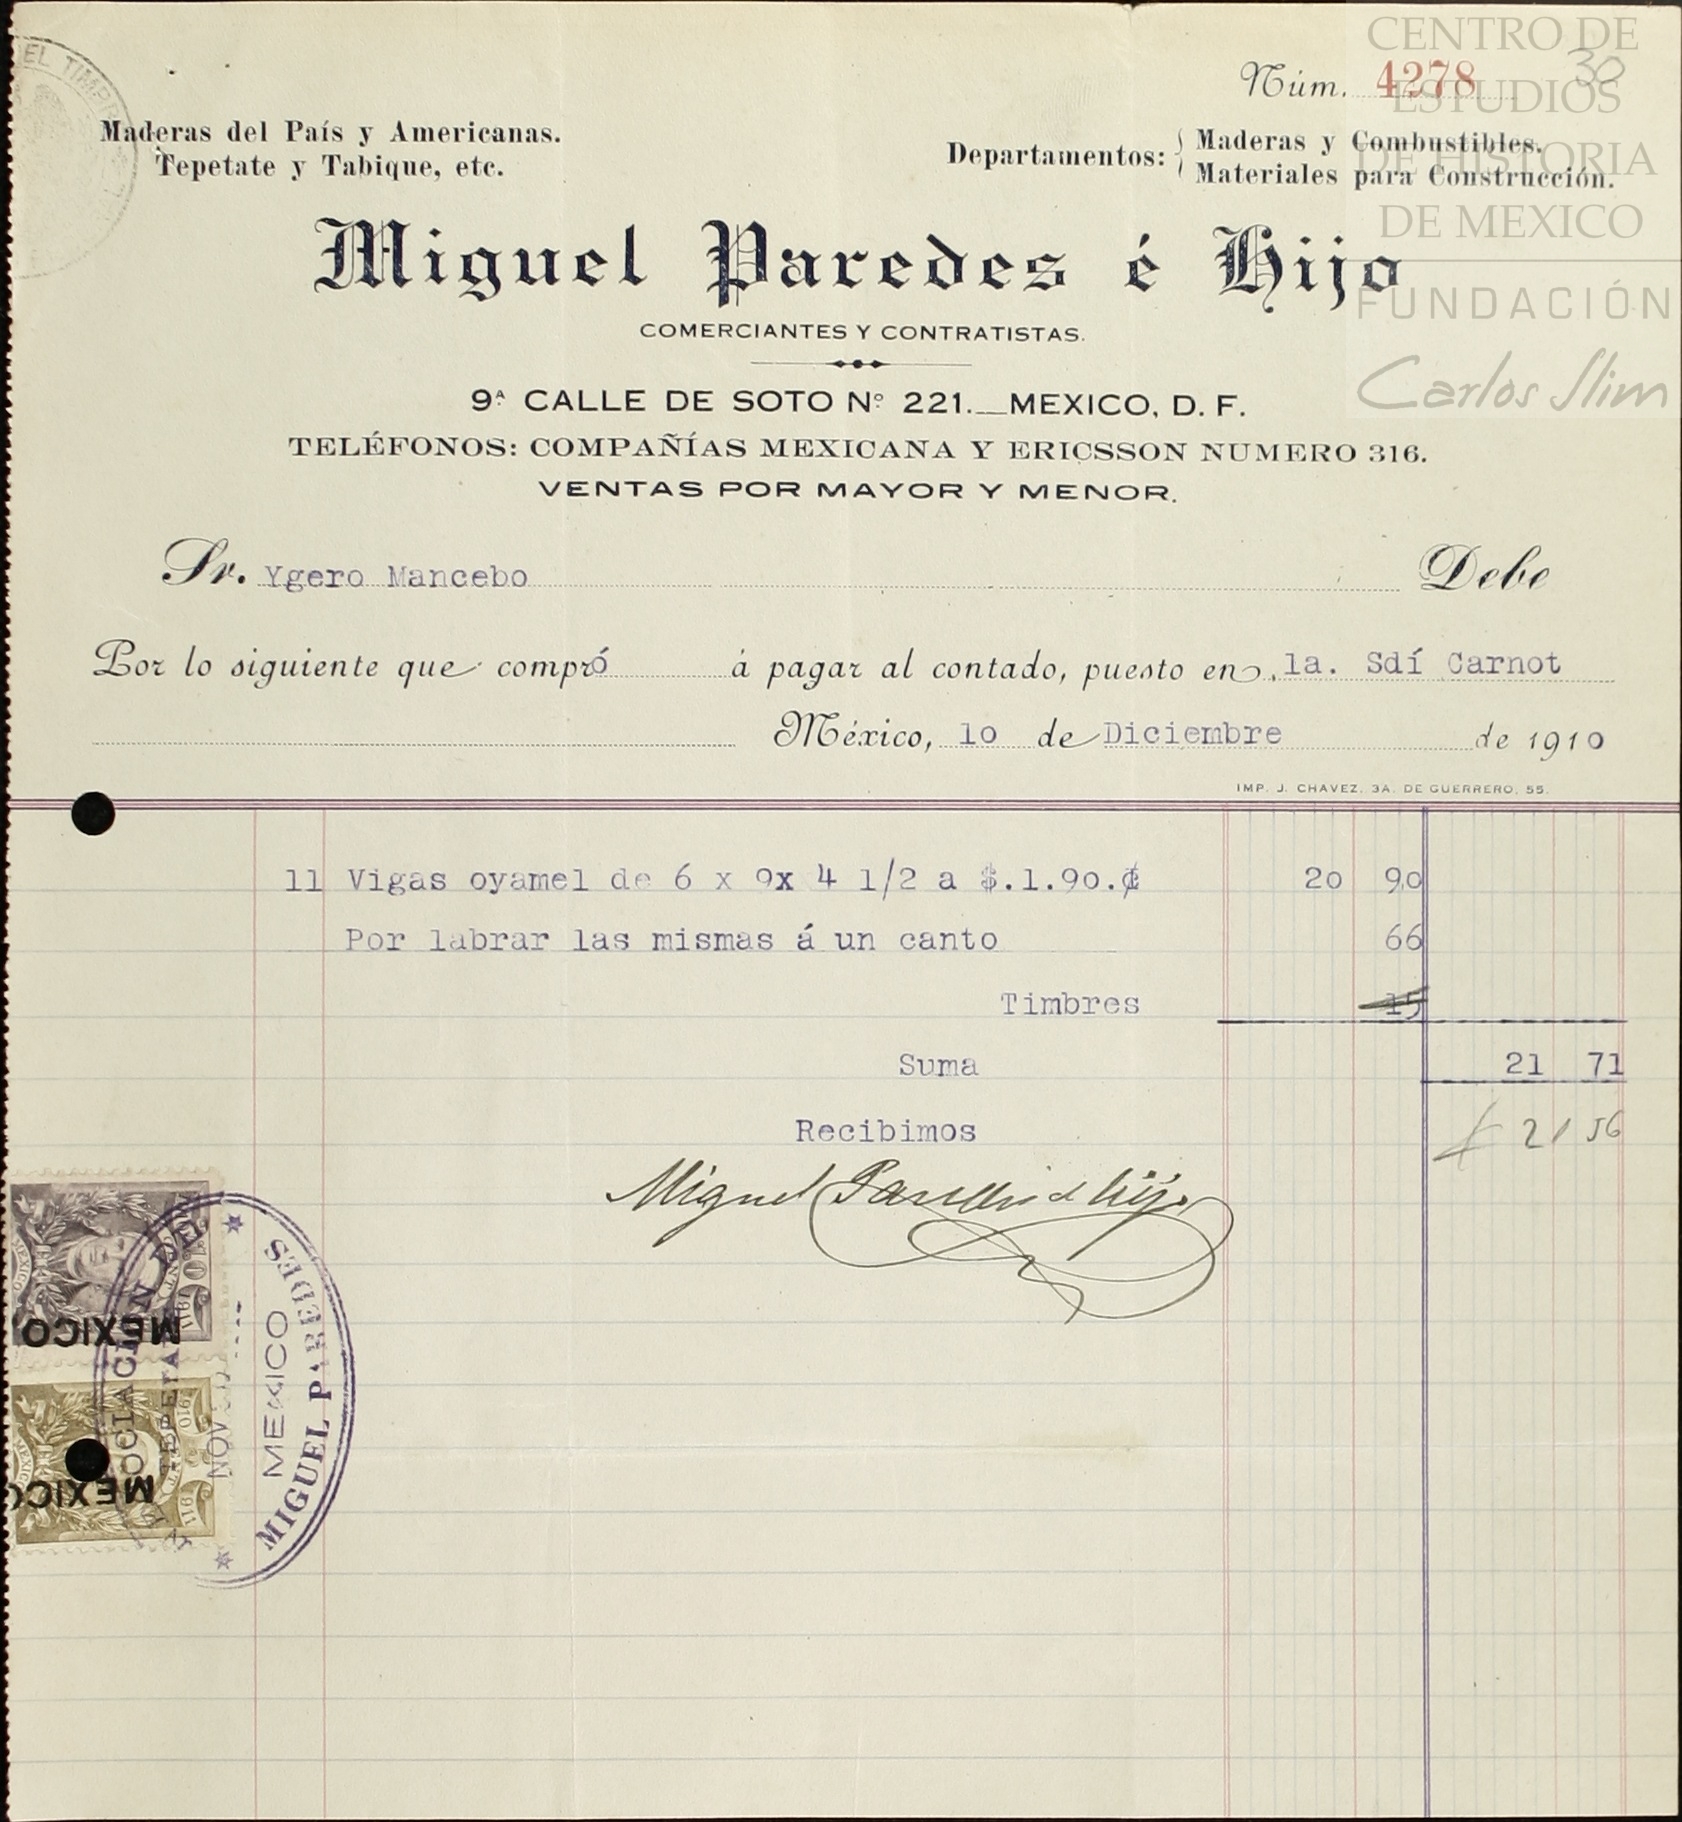 CENTRO DE
ESTUDIOS
DE HISTORIA
DE MEXICO
FUNDACIÓN
Carlos Slim
EL TIMBRE
Núm. 4278
30
Maderas del País y Americanas.
Tepetate y Tabique, etc.
Departamentos: Maderas y Combustibles.
Materiales para Construcción.
Miguel Paredes é Hijo
COMERCIANTES Y CONTRATISTAS.
9ª CALLE DE SOTO Nº 221.—MEXICO, D. F.
TELÉFONOS: COMPAÑÍAS MEXICANA Y ERICSSON NUMERO 316.
VENTAS POR MAYOR Y MENOR.
Sr. Ygero Mancebo Debe
Por lo siguiente que compró á pagar al contado, puesto en 1a. Sdí Carnot
México, 10 de Diciembre de 1910
IMP. J. CHAVEZ. 3A. DE GUERRERO, 55.
11 Vigas oyamel de 6 x 9x 4 1/2 a $.1.90.¢ 20 90
Por labrar las mismas á un canto 66
Timbres 15
Suma 21 71
Recibimos 21 56
Miguel Paredes é hijo
MEXICO
MEXICO
NOV
MEXICO
MIGUEL PAREDES